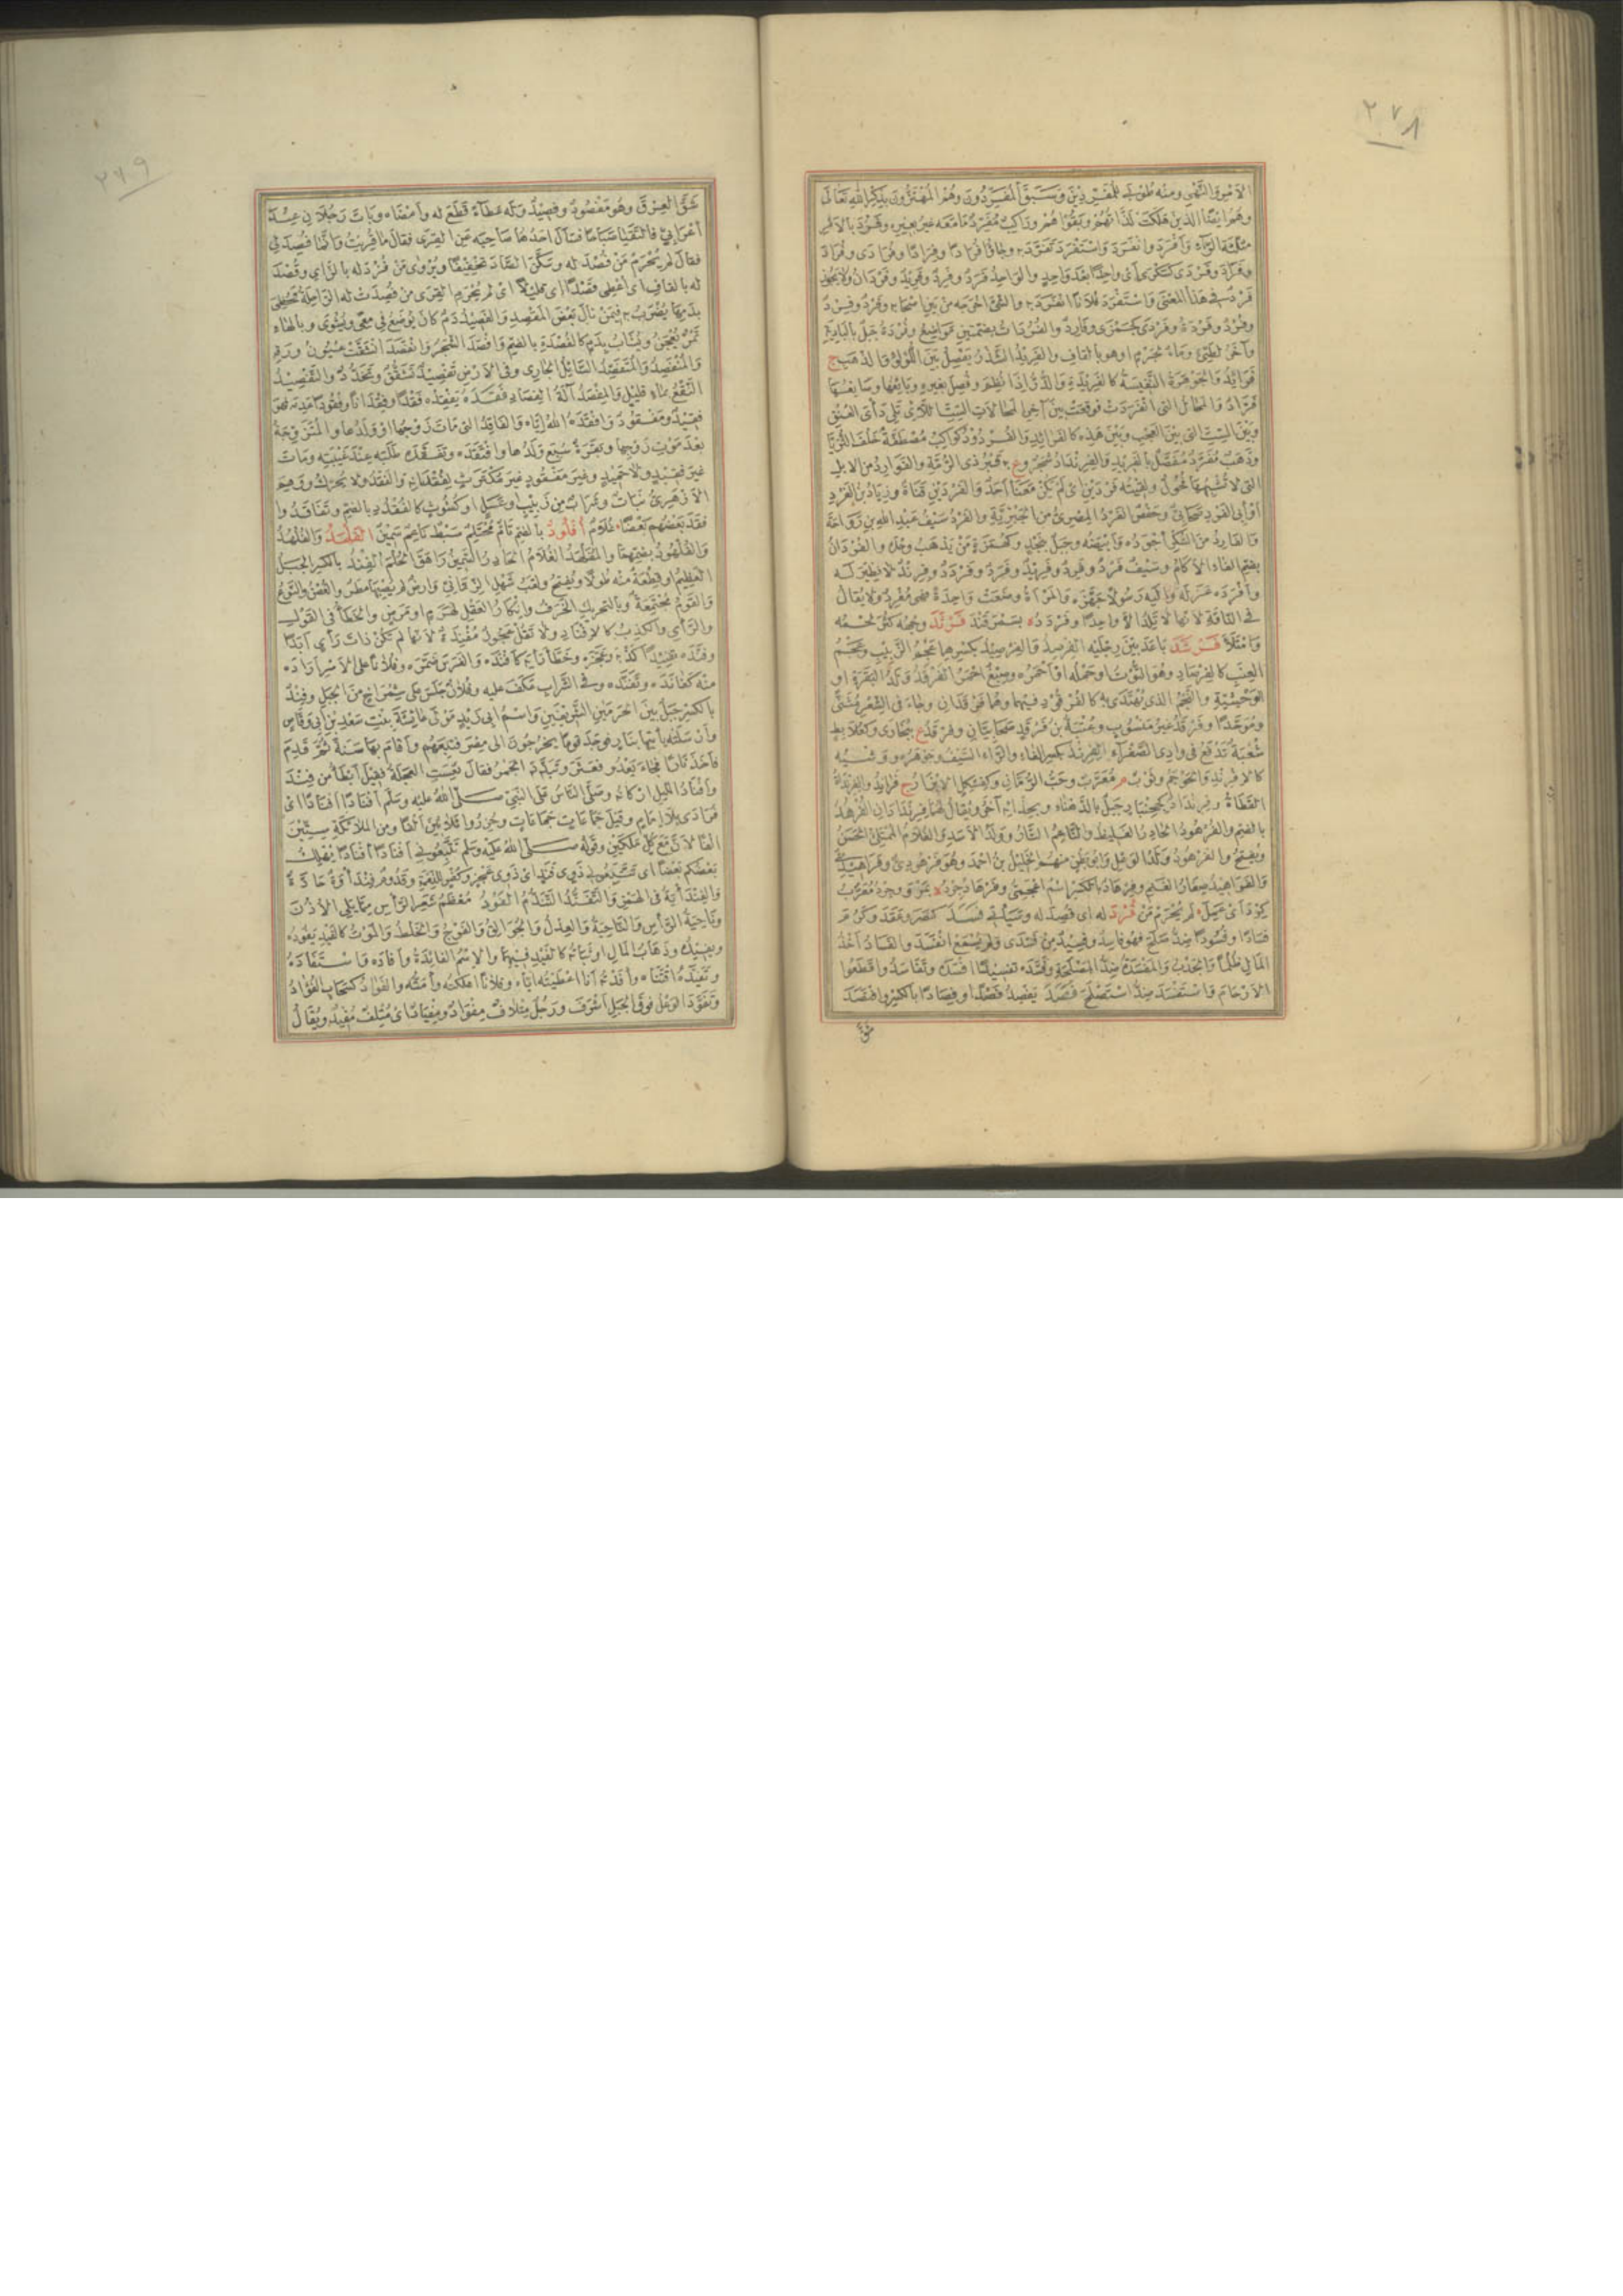 ٢٧٨
الأمر والنهي ومنه طوبى للمفردين وسبق المفردون وهم المهتزون بذكر الله تعالى
وهم ايضا الذين هلكت لذاتهم وبقوا هم وراكب مفرد ما معه غير بعيره وفرد بالامر
مثلثة الراء وافرد وانفرد واستفرد تفرد به وجاؤا فرادا وفرادا وفرادى وفراد
وفراد وفردى كسكرى اى واحدا بعد واحد والواحد فرد وفرد وفريد وفردان ولا يجوز
فرد في هذا المعنى واستفرد فلانا انفرد به والشئ اخرجه من بين اصحابه وفرد وفرد
وفرد وفردة وفردى كجمزى وفارد والفردات بضمتين مواضع وفردة جبل بالبادية
وآخر لطيئ وماء لجرم او هو بالقاف والفريد الشذر يفصل بين اللؤلؤ والذهب ج
فرائد والجوهرة النفيسة كالفريدة والدر اذا نظم وفصل بغيره وبائعها وصانعها
فراد والمحال التي انفردت فوقعت بين آخر المحالات الست اللاتي تلي دأى العنق
وبين الست التي بين العجب وبين هذه كالفرائد والفردود كواكب مصطفة خلف الثريا
وذهب مفرد مفصل بالفريد والفرنداد شجر وع به قبر ذي الرمة والفوارد من الابل
التي لا تشبهها فحول ولقيته فردين اى لم يكن معنا احد والفردين قناة وزياد بن الفرد
او ابى الفرد صحابي وحفص الفرد المصري من الجبرية والفرد سيف عبد الله بن رواحة
والفارد من السكر اجوده وابيضه وجبل بنجد وكهمزة من يذهب وحده والفردان
بضم الفاء الآكام وسيف فرد وفرد وفريد وفرد وفردد وفرند لا نظير له
وافرده عزله واليه رسولا جهزه والمرأة وضعت واحدة فهي مفرد ولا يقال
في الناقة لانها لا تلد الا واحدا وفردد ه بسمرقند فرثد وجهه كثر لحمه
وامتلأ فرشد باعد بين رجليه الفرصد والفرصيد بكسرهما عجم الزبيب وعجم
العنب كالفرصاد وهو التوت او حمله او احمره وصبغ احمر الفرقد ولد البقرة او
الوحشية والنجم الذي يهتدى به كالفرقود فيهما وهما فرقدان وجاء في الشعر مثنى
وموحدا وفرقد غير منسوب وعتبة بن فرقد صحابيان وفرقد ع ببخارى وكعلابط
شعبة تدفع في وادي الصفراء الفرند بكسر الفاء والراء السيف وجوهره ووشيه
كالافرند والحوجم وثوب م معرب وحب الرمان وكفسكل الابزار ج فراند والفرندة
القطاة وفرنداد كجحنبار جبل بالدهناء وبحذائه آخر ويقال لهما فرندادان الفرهد
بالضم والفرهود الحادر الغليظ والناعم التار وولد الاسد والغلام الممتلئ الحسن
ويفتح والفرهود ولد الوعل وابو بطن منهم الخليل بن احمد وهو فرهودي وفراهيدي
والفراهيد صغار الغنم وفرهاد بالكسر اسم اعجمي وفرهادجرد ه بمرو وجرد معرب
كرد اى عمل لم يحرم من فزد له اى فصد له وسيأتي فسد كنصر وعقد وكرم
فسادا وفسودا ضد صلح فهو فاسد وفسيد من فسدى ولم يسمع انفسد والفساد اخذ
المال ظلما والجدب والمفسدة ضد المصلحة وفسده تفسيدا افسده وتفاسدوا قطعوا
الارحام واستفسد ضد استصلح فصد يفصد فصدا وفصادا بالكسر وافتصد
شق
٢٧٩
شق العرق وهو مفصود وفصيد وله عطاء قطع له وامضاه وبات رجلان عند
اعرابي فالتقيا صباحا فسأل احدهما صاحبه عن القرى فقال ما قريت وانما فصد لي
فقال لم يحرم من فصد له وسكن الصاد تخفيفا ويروى من فزد له بالزاي وقصد
له بالقاف اى اعطى قصدا اى قليلا اى لم يحرم القرى من فصدت له الراحلة فحظي
بدمها يضرب فيمن نال بعض المقصد والفصيد دم كان يوضع في معى ويشوى وبالهاء
تمر يعجن ويشاب بدم كالفصدة بالضم وافصد الشجر وانفصد انشقت عيون ورقه
والمنفصد والمتفصد السائل الجاري وفي الارض تفصيد تشقق وتخدد والتفصيد
النقع بماء قليل والمفصد آلة الفصاد فقده يفقده فقدا وفقدانا وفقودا عدمه فهو
فقيد ومفقود وافقده الله اياه والفاقد التي مات زوجها او ولدها والمتزوجة
بعد موت زوجها وبقرة سبع ولدها وافتقده وتفقده طلبه عند غيبته ومات
غير فقيد ولا حميد وغير مفقود غير مكترث لفقدانه والفقد ولا يحرك ووهم
الازهري نبات وشراب من زبيب او عسل او كشوث كالفقدد بالضم وتفاقدوا
فقد بعضهم بعضا غلام افلود بالضم تام محتلم سبط ناعم سمين الفلهد والفلهد
والفلهود بضمهما والمفلهد الغلام الحادر السمين راهق الحلم الفند بالكسر الجبل
العظيم او قطعة منه طولا ويفتح ولقب شهل الزماني وارض لم يصبها مطر والغصن والنوع
والقوم مجتمعة وبالتحريك الخرف وانكار العقل لهرم او مرض والخطأ في القول
والرأي والكذب كالافناد ولا تقل عجوز مفندة لانها لم تكن ذات رأي ابدا
وفنده تفنيدا كذبه وعجزه وخطأ رأيه كافنده والفرس ضمره وفلانا على الامر اراده
منه كفانده وتفنده وفي الشراب عكف عليه وفلان جلس على شمراخ من الجبل وفند
بالكسر جبل بين الحرمين الشريفين واسم ابى زيد مولى عائشة بنت سعد بن ابي وقاص
وارسلته يأتيها بنار فوجد قوما يخرجون الى مصر فتبعهم واقام بها سنة ثم قدم
فاخذ نارا فجاء يعدو فعثر وتبدد الجمر فقال تعست العجلة فقيل ابطأ من فند
وافناد الليل اركانه وصلى الناس على النبي صلى الله عليه وسلم افنادا افنادا اى
فرادى بلا امام وقيل جماعات جماعات وحزروا ثلاثين الفا ومن الملائكة ستين
الفا لان مع كل ملكين وقوله صلى الله عليه وسلم تتبعوني افنادا افنادا يهلك
بعضكم بعضا اى تتبعوني ذوي فند اى ذوي عجز وكفر للنعمة وقدوم فندأوة حادة
والفندأية في الهمز والتفند التندم الفود معظم شعر الرأس مما يلي الاذن
وناحية الرأس والناحية والعدل والجوالق والفوج والخلط والموت كالفيد يفود
ويفيد وذهاب المال او ثباته كالفيد فيهما والاسم الفائدة وافاده واستفاده
وتفيده اقتناه وافدته انا اعطيته اياه وفلانا اهلكته وامته والفواد كسحاب الفؤاد
وتفود الوعل فوق الجبل اشرف ورجل متلاف مفواد ومفياد اى متلف مفيد ويقال